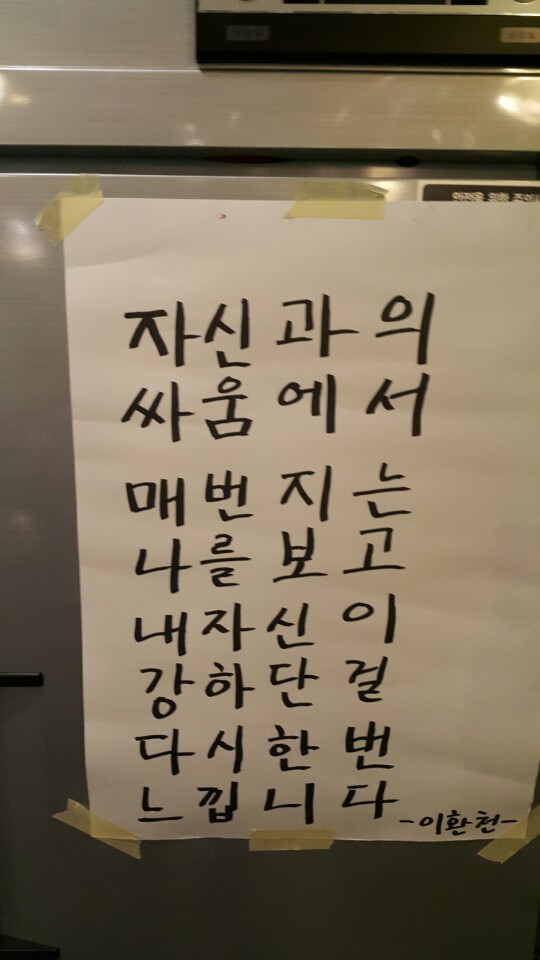 자신과의
싸움에서
매번지는
나를보고
내자신이
강하단걸
다시한번
느낍니다
-이환천-